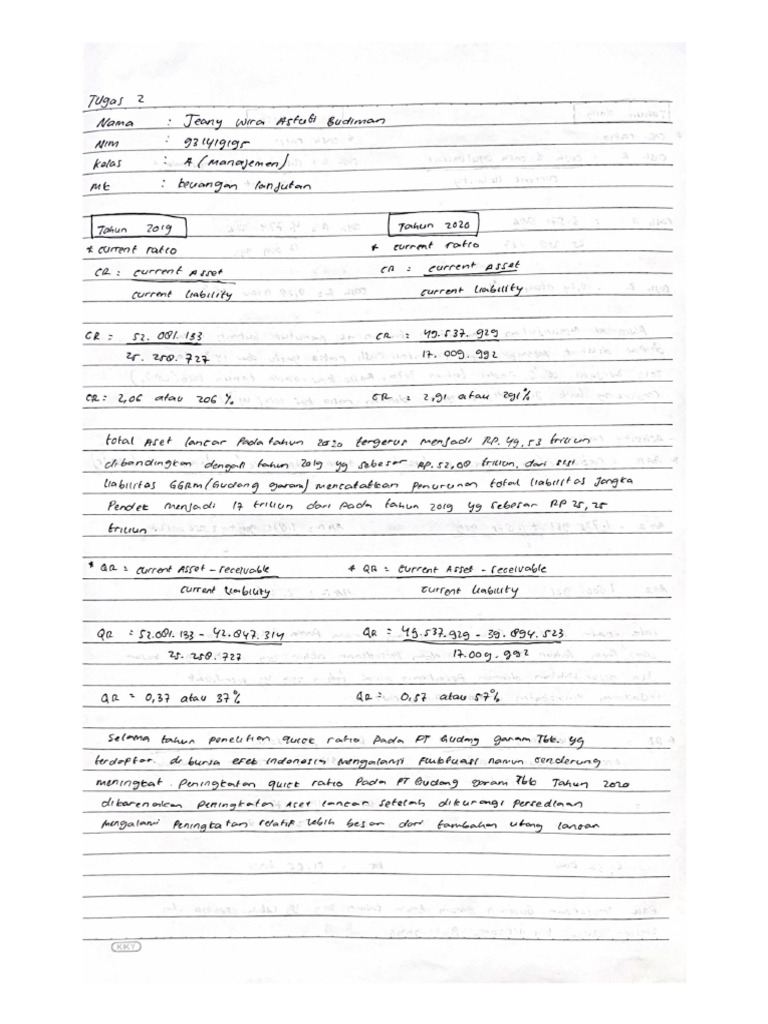 Tugas 2
Nama : Jeany Wira Astuti Budiman
Nim : 931419195
Kelas : A (Manajemen)
Mk : keuangan lanjutan
Tahun 2019
* current ratio
CR : current Asset
current liability
CR = 52.081.133
25.258.727
CR : 2,06 atau 206 %
Tahun 2020
* current ratio
CR : current Asset
current liability
CR = 49.537.929
17.009.992
CR = 2,91 atau 291%
total Aset lancar pada tahun 2020 tergerus menjadi RP. 49,53 triliun
dibandingkan dengan tahun 2019 yg sebesar RP. 52,08 triliun, dari sisi
liabilitas GGRM (Gudang garam) mencatatkan penurunan total liabilitas Jangka
Pendek menjadi 17 triliun dari pada tahun 2019 yg sebesar RP 25,25
triliun
* QR = current Asset - receivable
current liability
QR = 52.081.133 - 42.847.314
25.258.727
QR = 0,37 atau 37%
* QR = current Asset - receivable
current liability
QR = 49.537.929 - 39.894.523
17.009.992
QR = 0,57 atau 57%
Selama tahun penelitian quick ratio pada PT Gudang garam Tbk. yg
terdaftar di bursa efek indonesia mengalami fluktuasi namun cenderung
meningkat. Peningkatan quick ratio Pada PT Gudang garam Tbk Tahun 2020
dikarenakan peningkatan Aset lancar setelah dikurangi persediaan
mengalami Peningkatan relatif lebih besar dari tambahan utang lancar
KKY